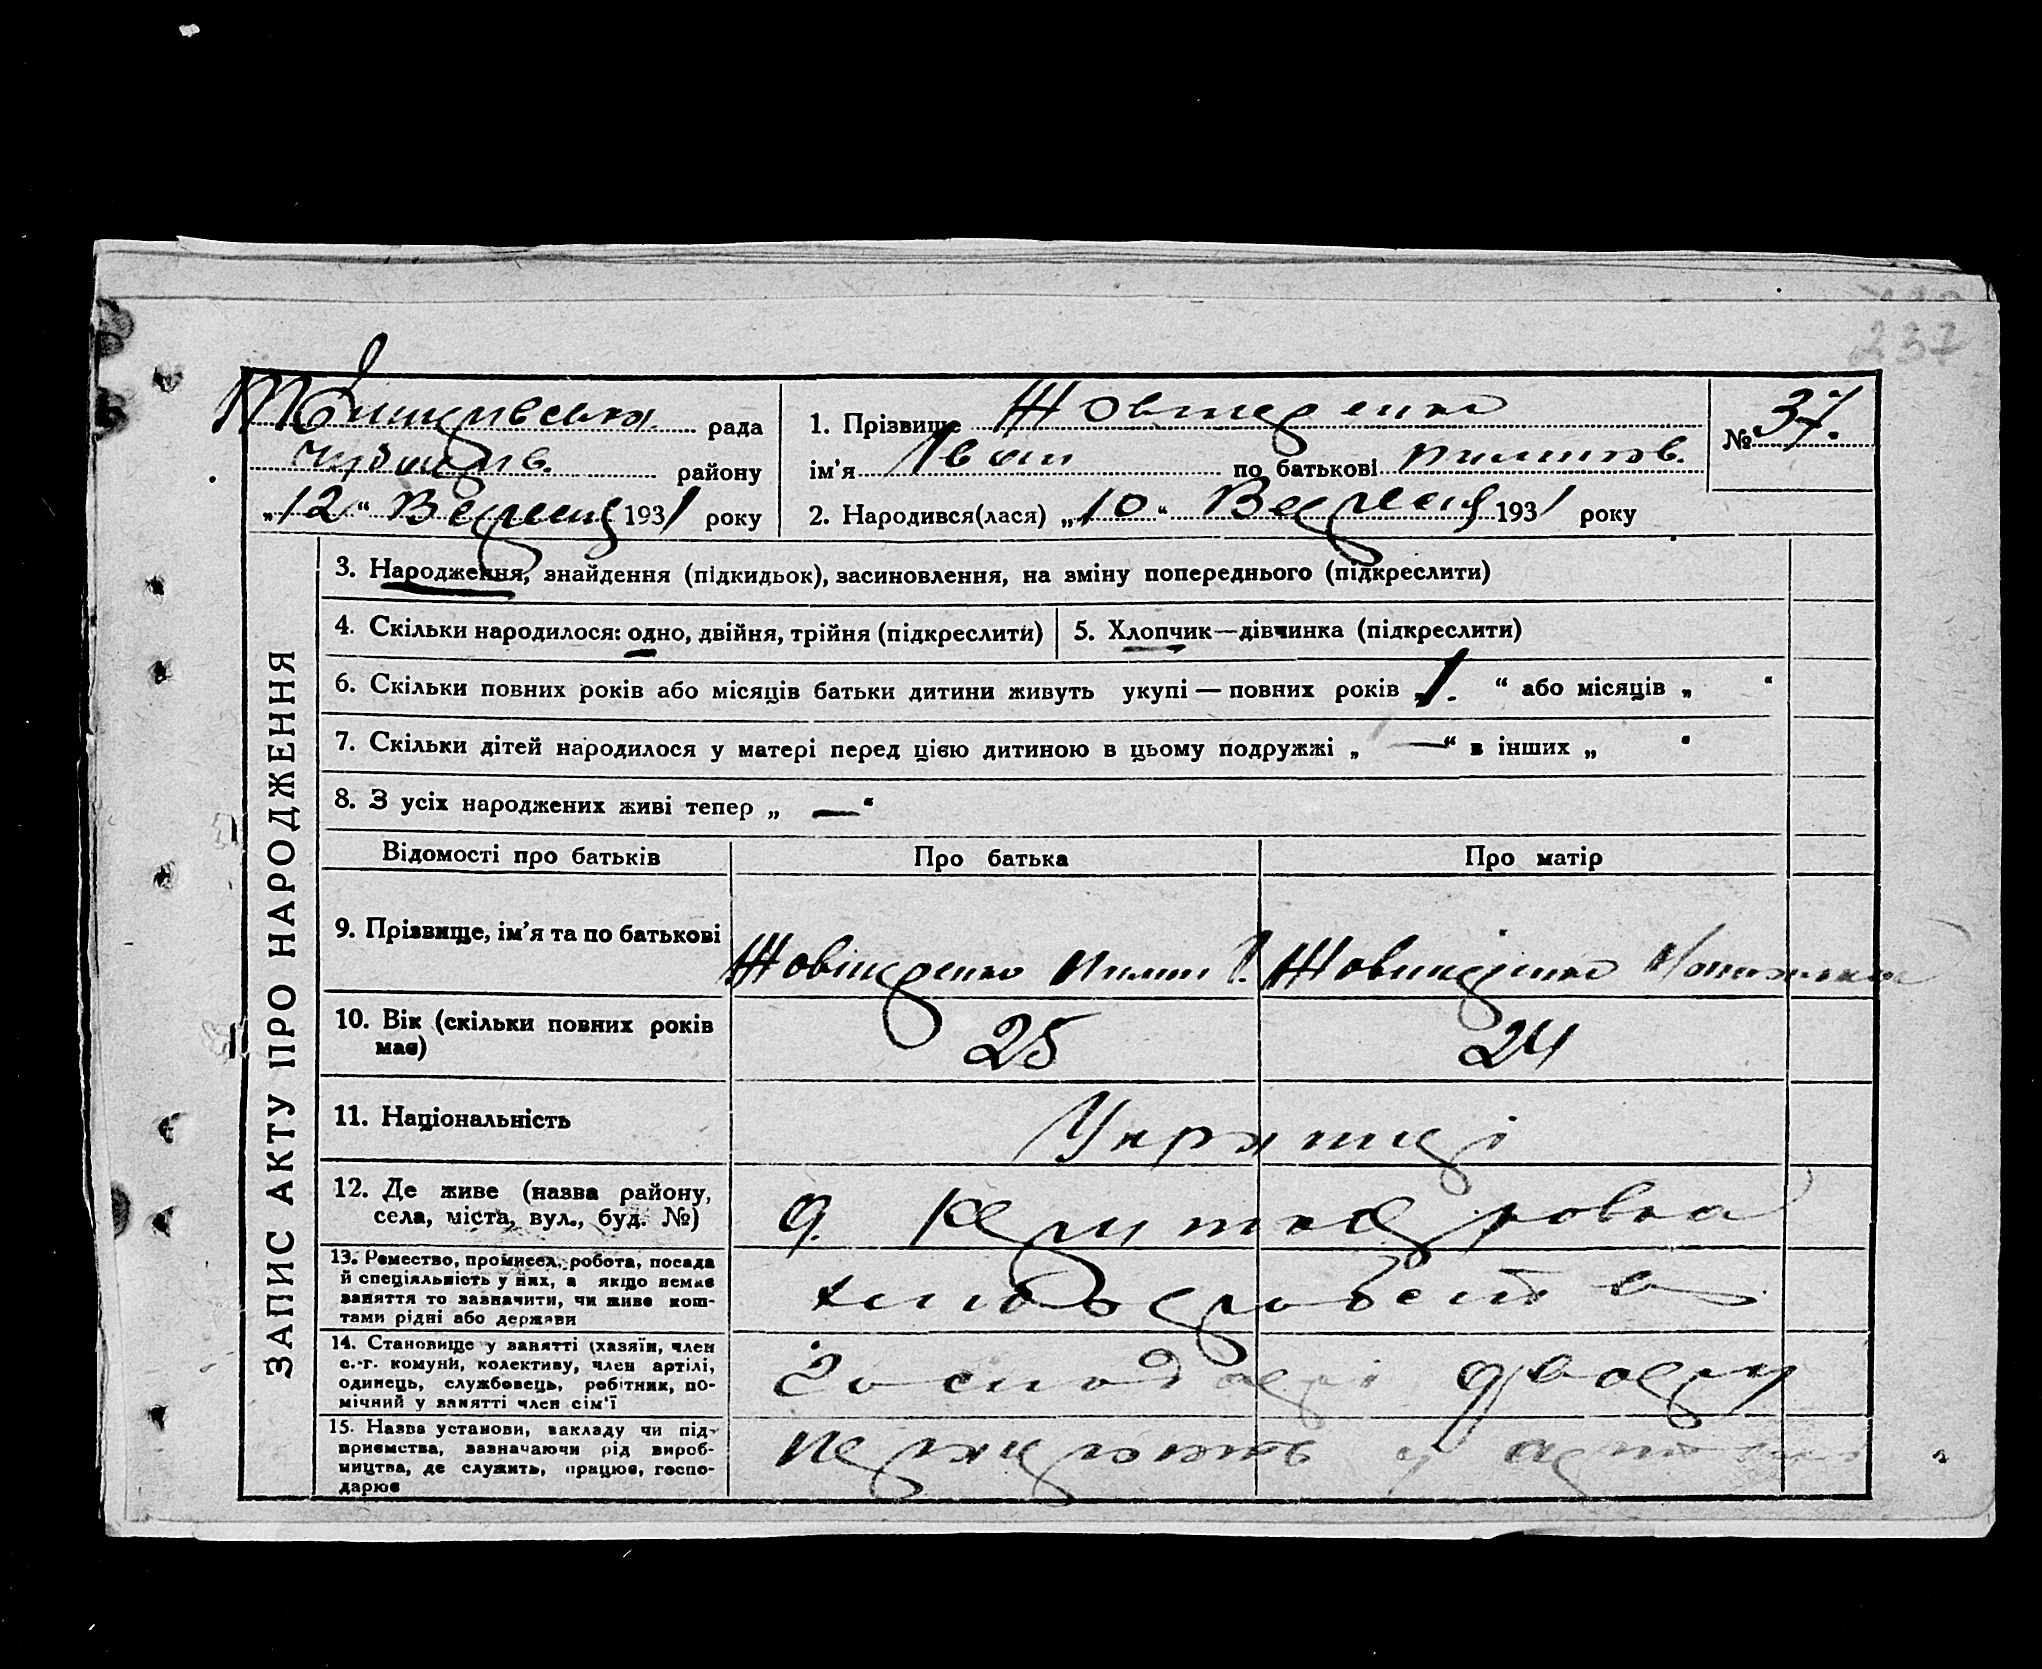 237
рада
1. Прізвище
№ 37.
району
ім’я Іван по батькові Пилипов.
„12“ Вересня 1931 року
2. Народився(лася) „10“ Вересня 1931 року
ЗАПИС АКТУ ПРО НАРОДЖЕННЯ
3. Народження, знайдення (підкидьок), засиновлення, на зміну попереднього (підкреслити)
4. Скільки народилося: одно, двійня, трійня (підкреслити)
5. Хлопчик—дівчинка (підкреслити)
6. Скільки повних років або місяців батьки дитини живуть укупі — повних років „1.“ або місяців „ “
7. Скільки дітей народилося у матері перед цією дитиною в цьому подружжі „ —“ в інших „ “
8. З усіх народжених живі тепер „ —“
Відомості про батьків
Про батька
Про матір
9. Прізвище, ім’я та по батькові
Пилип
10. Вік (скільки повних років
має)
25
24
11. Національність
Українці
12. Де живе (назва району,
села, міста, вул., буд. №)
13. Ремество, промисел, робота, посада
й спеціяльність у них, а якщо немає
заняття то зазначити, чи живе кош-
тами рідні або держави
хліборобства
14. Становище у занятті (хазяїн, член
с.-г. комуни, колективу, член артілі,
одинець, службовець, робітник, по-
мічний у занятті член сім’ї
Господарі двору
15. Назва установи, закладу чи під-
приємства, зазначаючи рід вироб-
ництва, де служить, працює, госпо-
дарює
працюють у